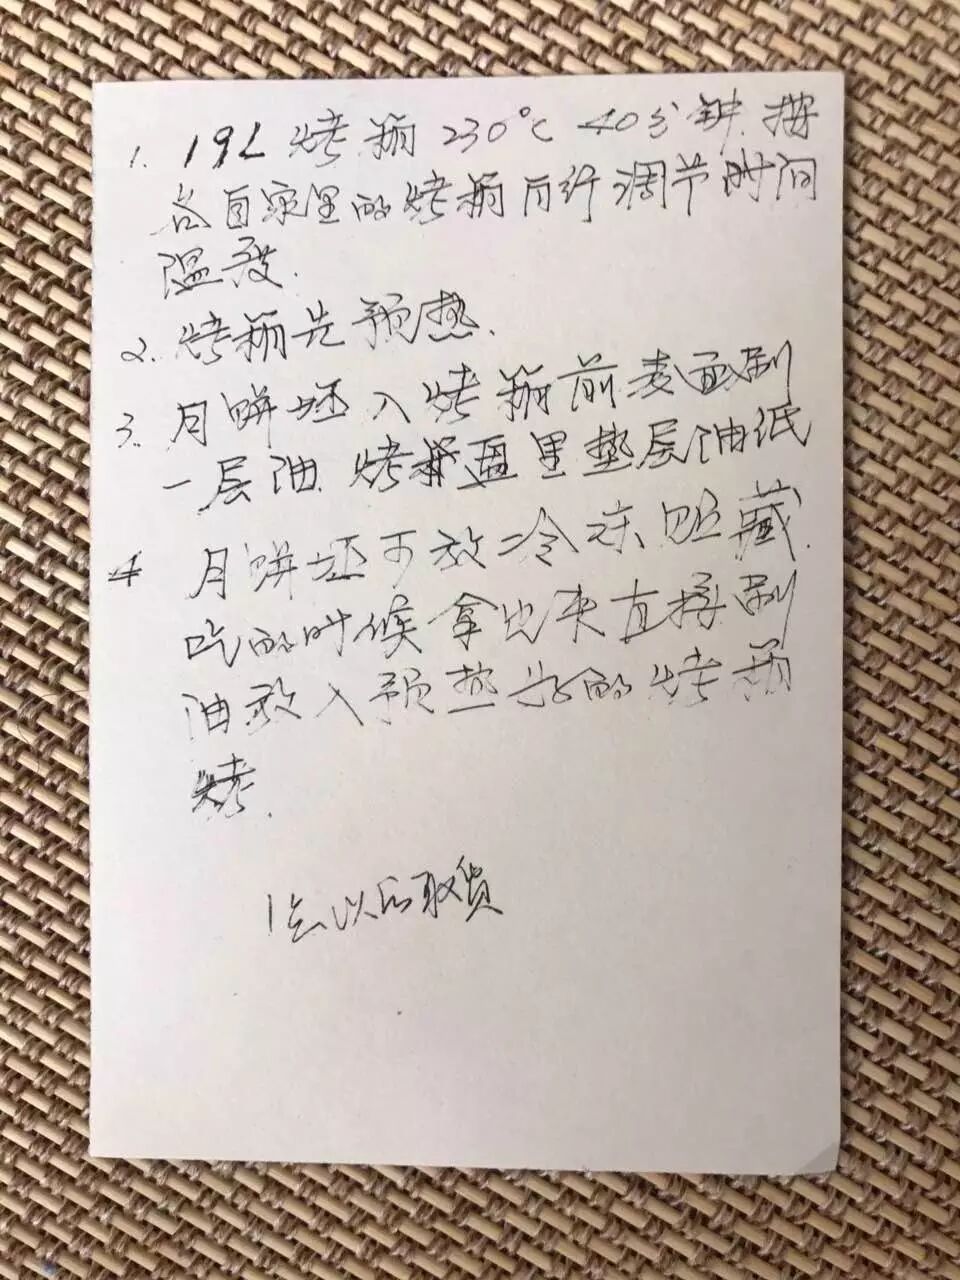 1. 19L 烤箱 230℃ 40分钟. 按
各自家里的烤箱自行调节时间
温度.
2. 烤箱先预热.
3. 月饼坯入烤箱前表面刷
一层油. 烤盘里垫层油纸
4 月饼坯可放冷冻贮藏.
吃的时候拿出来直接刷
油放入预热好的烤箱
烤.
以后取货